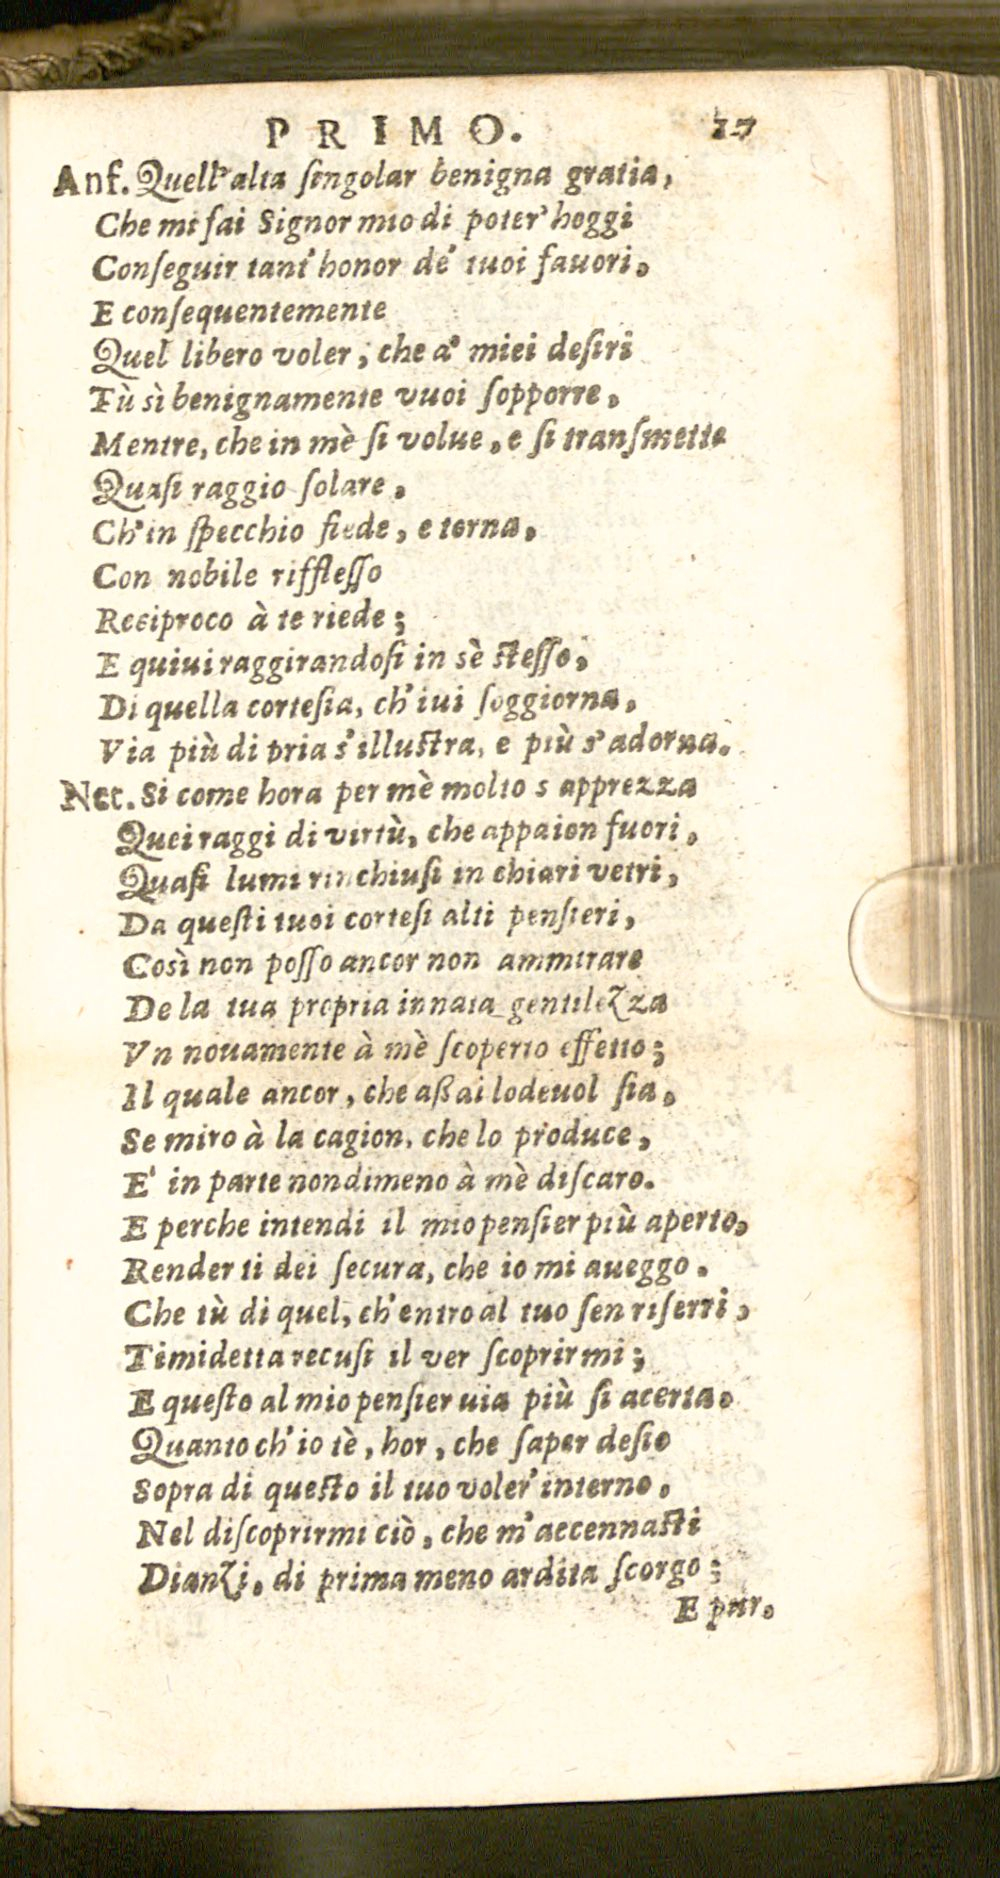 PRIMO. 17
Anf. Quell'alta singolar benigna gratia,
Che mi fai Signor mio di poter'hoggi
Conseguir tant'honor de' tuoi fauori,
E consequentemente
Quel libero voler, che a' miei desiri
Tù sì benignamente vuoi sopporre,
Mentre, che in mè si volue, e si transmette
Quasi raggio solare,
Ch'in specchio fiede, e torna,
Con nobile rifflesso
Reciproco à te riede;
E quiui raggirandosi in sè stesso,
Di quella cortesia, ch'iui soggiorna,
Via più di pria s'illustra, e più s'adorna.
Net. Si come hora per mè molto s apprezza
Quei raggi di virtù, che appaion fuori,
Quasi lumi rinchiusi in chiari vetri,
Da questi tuoi cortesi alti pensieri,
Così non posso ancor non ammirare
De la tua propria innata gentilezza
Vn nouamente à mè scoperto effetto;
Il quale ancor, che assai lodeuol sia,
Se miro à la cagion, che lo produce,
E' in parte nondimeno à mè discaro.
E perche intendi il mio pensier più aperto,
Render ti dei secura, che io mi aueggo.
Che tù di quel, ch'entro al tuo sen riserri,
Timidetta recusi il ver scoprirmi;
E questo al mio pensier uia più si acerta,
Quanto ch'io tè, hor, che saper desio
Sopra di questo il tuo voler'interno,
Nel discoprirmi ciò, che m'accennasti
Dianzi, di prima meno ardita scorgo;
E pur,